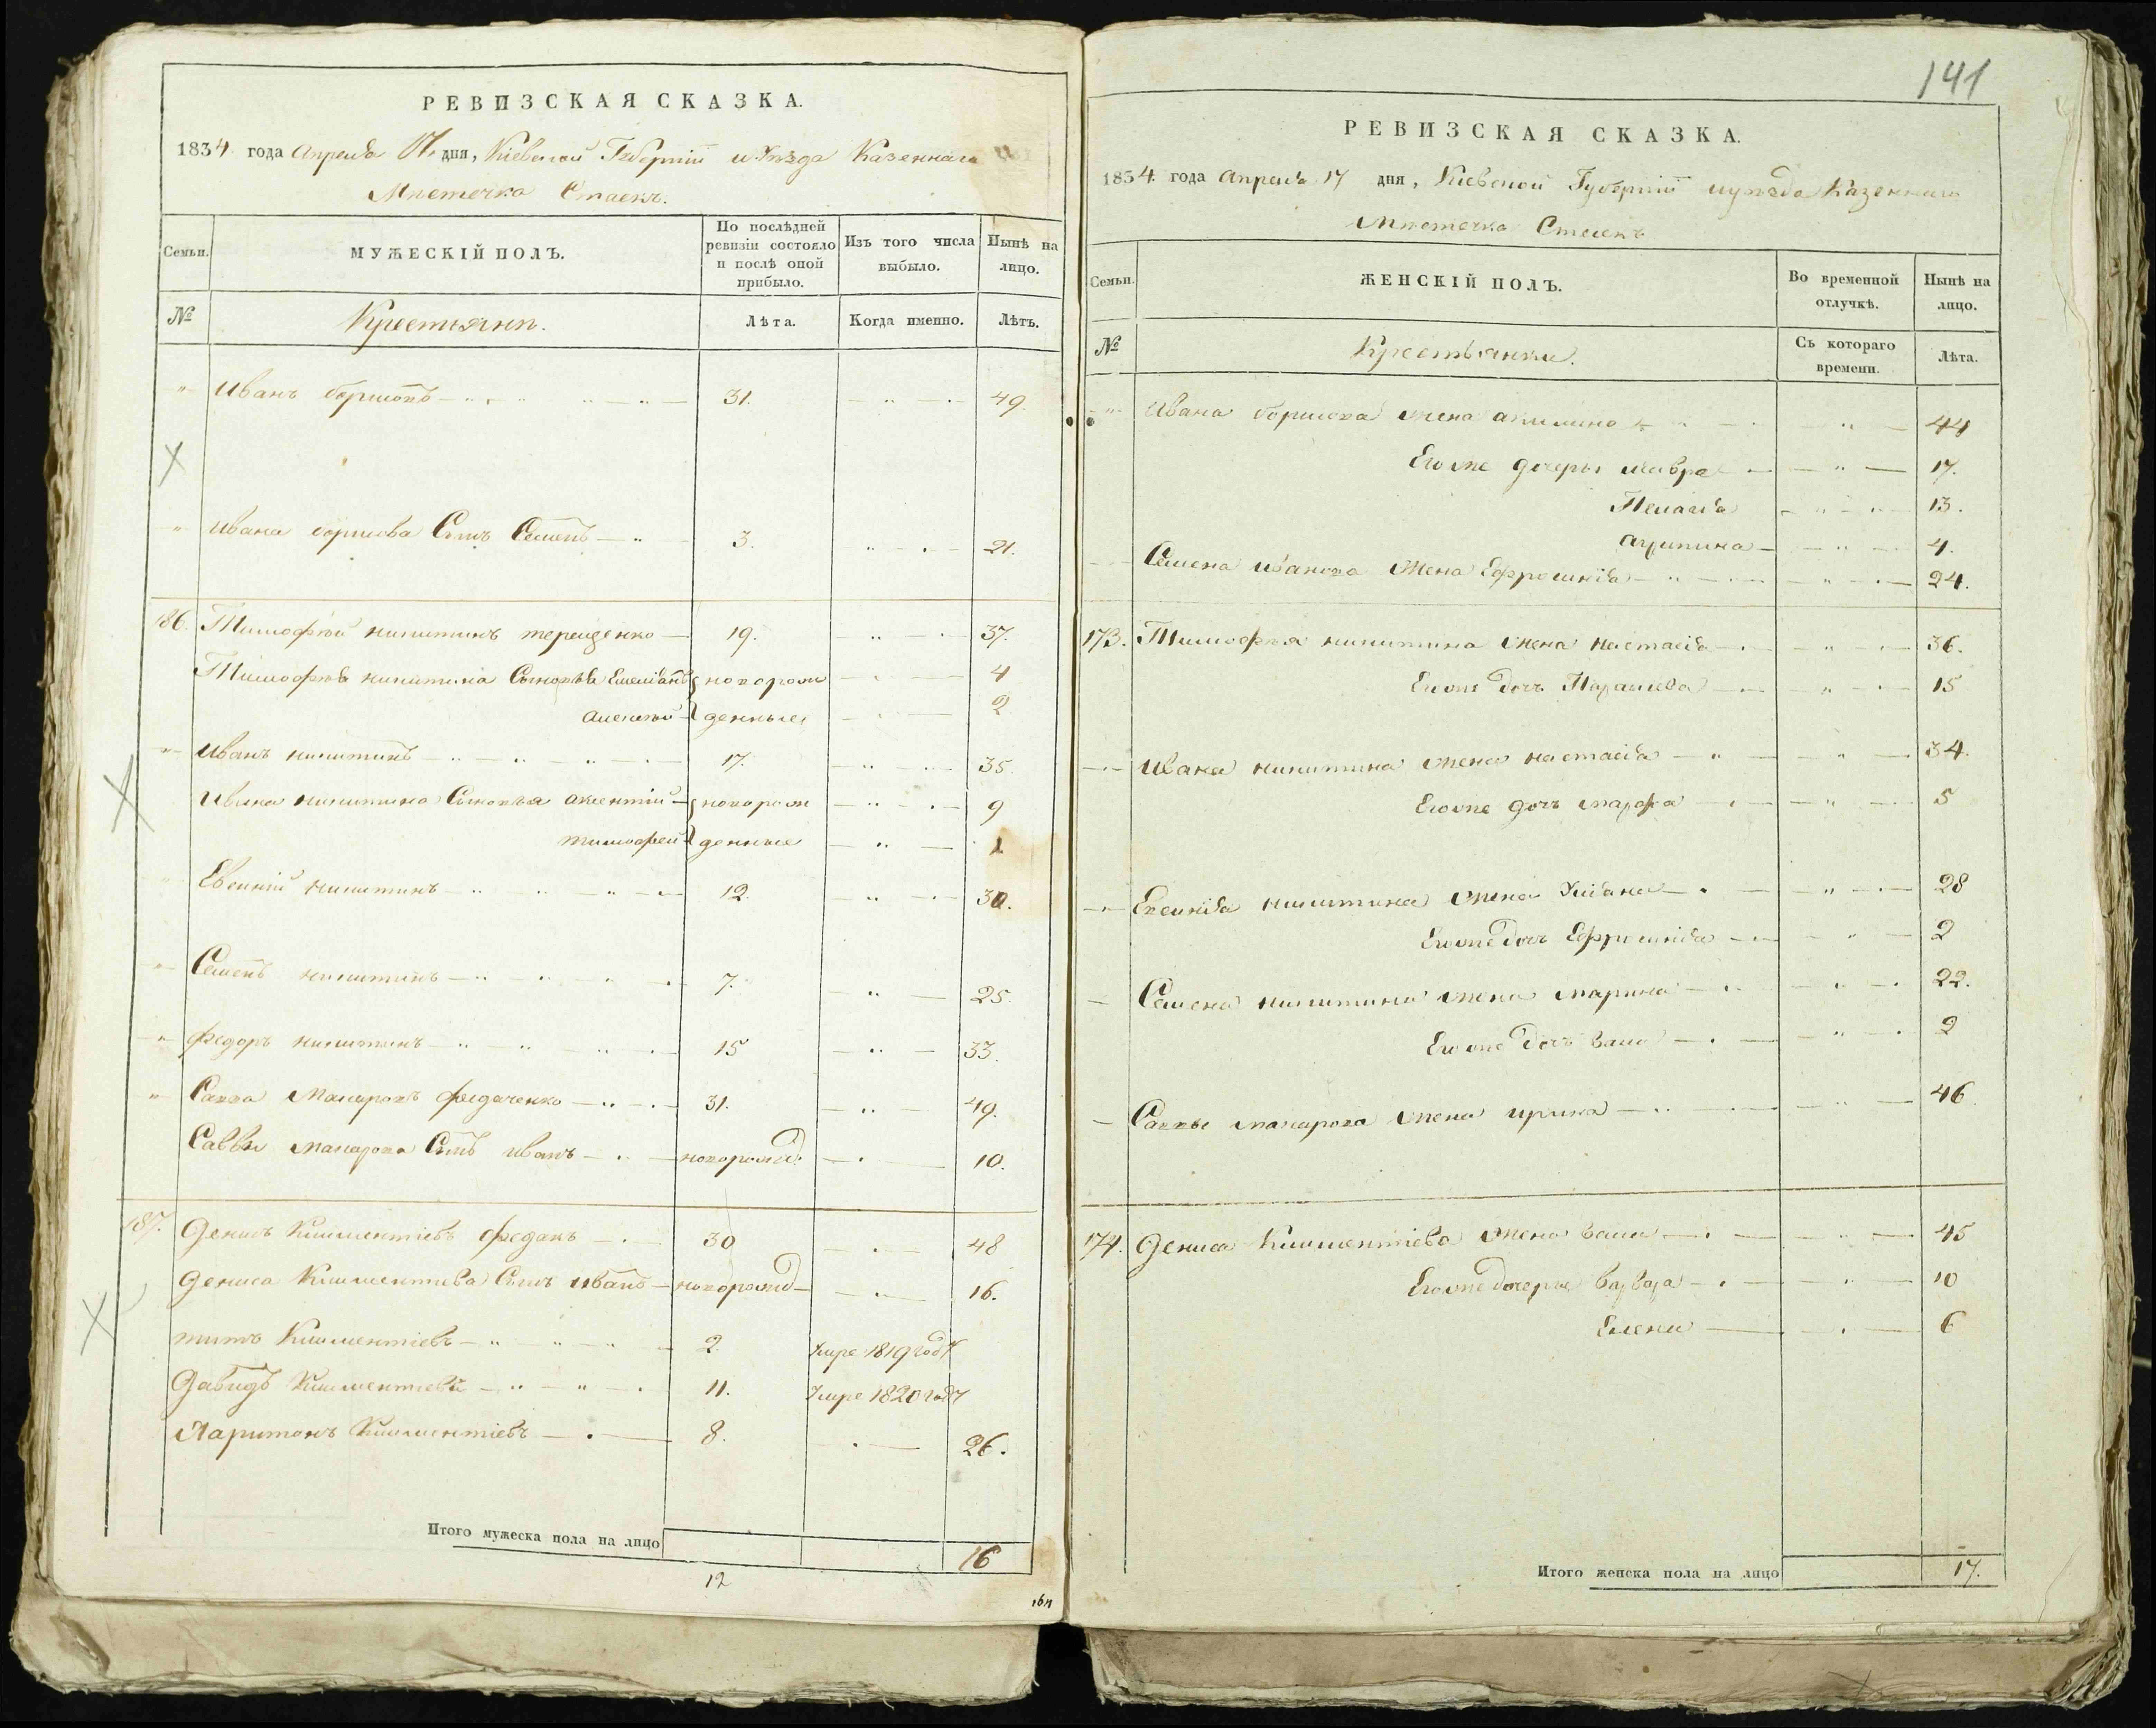 РЕВИЗСКАЯ СКАЗКА.
1834 года Апреля 17 дня, Кіевской Губерніи и Уѣзда Казеннаго
Мѣстечка Стаекъ.
Семьи. МУЖЕСКІЙ ПОЛЪ. По послѣдней ревизіи состояло и послѣ оной прибыло. Изъ того числа выбыло. Нынѣ на лицо.
№ Крестьяни. Лѣта. Когда именно. Лѣтъ.
Иванъ борисовъ 31. 49.
Ивана борисова Сынъ Семенъ 3. 21.
186. Тимофѣй никитинъ терещенко 19. 37.
Тимофѣя никитина Сыновья Емеліанъ новорож 4
алексѣй денные 2
Иванъ никитинъ 17. 35.
Ивана никитина Сыновья авксентій новорож 9
тимофей денные 1
Евсикій никитинъ 12. 30.
Семенъ никитинъ 7. 25.
Федоръ никитинъ 15 33.
Савва Макаровъ федаченко 31. 49.
Саввы макарова Сынъ иванъ новорожд: 10.
187. Денисъ Климентіевъ федакъ 30 48
Дениса Климентиева Сынъ иванъ новорожд 16.
титъ Климентіевъ 2. Умре 1819 году
Давидъ Климентіевъ 11. Умре 1820 году
Харитонъ Климентіевъ 8. 26.
Итого мужеска пола на лицо 16
12
141
РЕВИЗСКАЯ СКАЗКА.
1834 года Апреля 17 дня, Кіевской Губерніи и уѣзда Казеннаго
Мѣстечка Стаекъ
Семьи. ЖЕНСКІЙ ПОЛЪ. Во временной отлучкѣ. Нынѣ на лицо.
№ Крестьянки. Съ котораго времени. Лѣта.
Ивана борисова жена акилина 44
Его же дочеры мавра 17.
Пелагія 13.
агрипина 4.
Семена иванова жена Ефросинія 24.
173. Тимофѣя никитина жена настасія 36.
Его же дочъ Параскева 15
Ивана никитина жена настасія 34.
Его же дочъ марфа 5
никитина жена Уліана 28
Его же дочъ Ефросинія 2
Семена никитина жена марина 22.
Его же дочъ 2
Саввы макарова жена ирина 46
174. Дениса Климентіева жена 45
Его же дочеры варвара 10
Елена 6
Итого женска пола на лицо 17.